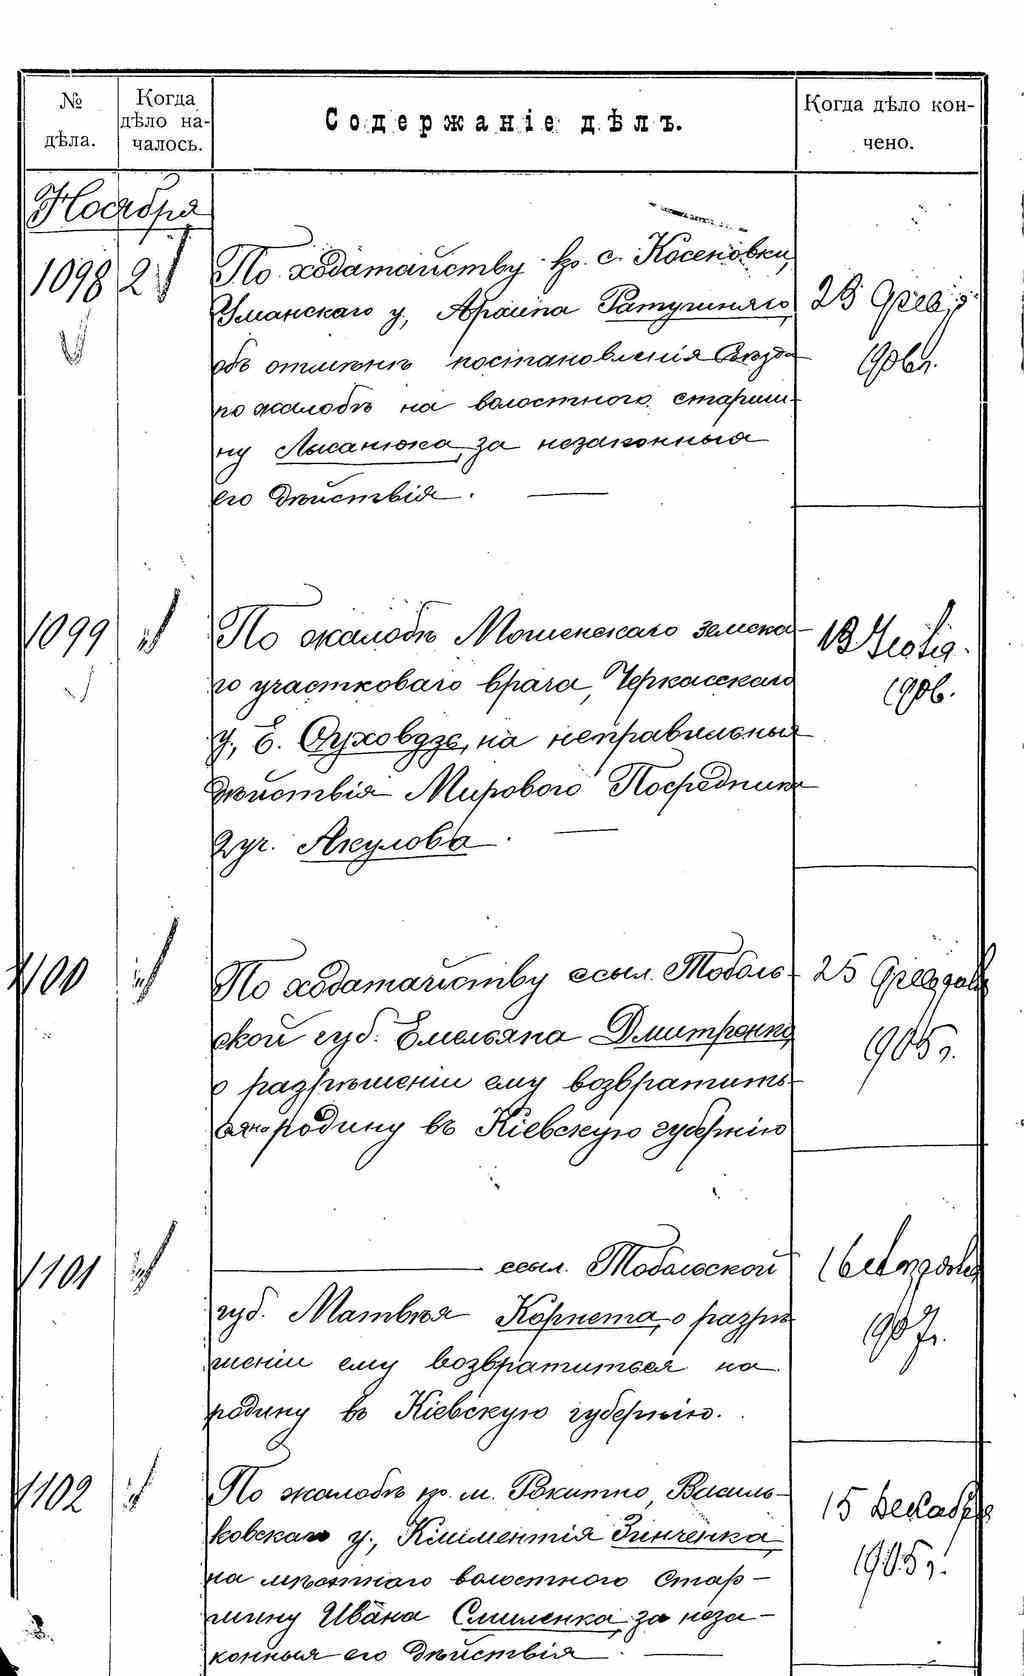 № дѣла.
Когда дѣло началось.
Содержаніе дѣлъ.
Когда дѣло кончено.
Ноября
1098
2
По ходатайству кр. с. Косеновки,
Уманскаго у., Архипа Ратушняго,
объ отмѣнѣ постановленія Съѣзда
по жалобѣ на волостного старши-
ну Лысанюка, за незаконныя
его дѣйствія.
23 Февр.
1906 г.
1099
"
По жалобѣ Мошенскаго земска-
го участковаго врача, Черкасскаго
у., Е. Суховдзе, на неправильныя
дѣйствія Мирового Посредника
2 уч. Акулова.
13
1906.
1100
"
По ходатайству ссыл. Тоболь-
ской губ. Емельяна Дмитренко,
о разрѣшеніи ему возвратить-
ся на родину въ Кіевскую губернію
25 Февраля
1905 г.
1101
"
ссыл. Тобольской
губ. Матвѣя Корнета, о разрѣ-
шеніи ему возвратиться на
родину въ Кіевскую губернію.
16
1907 г.
1102
"
По жалобѣ кр. м. Рокитно, Василь-
ковскаго у., Климентія Зинченка,
на мѣстнаго волостного Стар-
шину Ивана Смиленка, за неза-
конныя его дѣйствія
15 Декабря
1905 г.